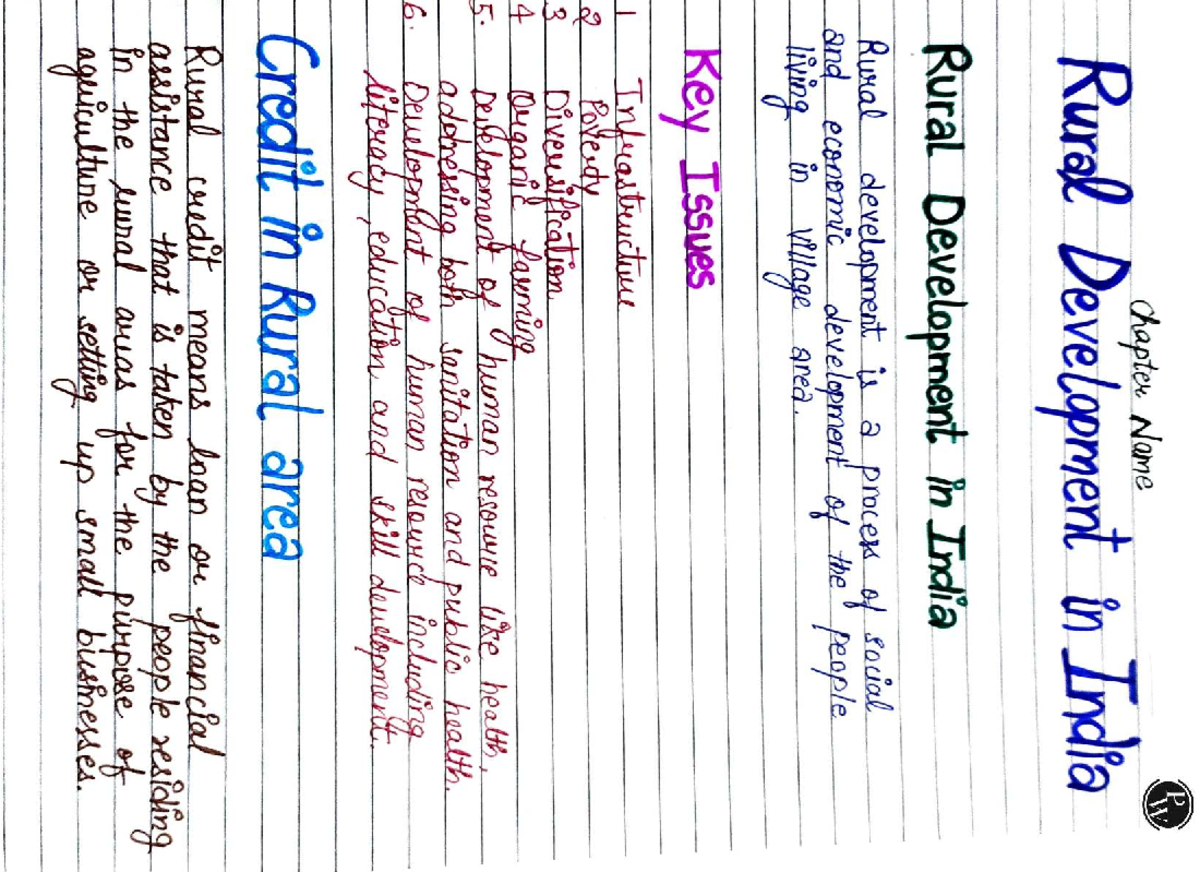 Chapter Name
PW
Rural Development in India
Rural Development in India
Rural development is a process of social
and economic development of the people
living in village area.
Key Issues
1 Infrastructure
2 Poverty
3 Diversification
4 Organic farming
5. Development of human resource like health,
addressing both sanitation and public health.
6. Development of human resource including
literacy, education and skill development.
Credit in Rural area
Rural credit means loan or financial
assistance that is taken by the people residing
in the rural areas for the purpose of
agriculture or setting up small businesses.